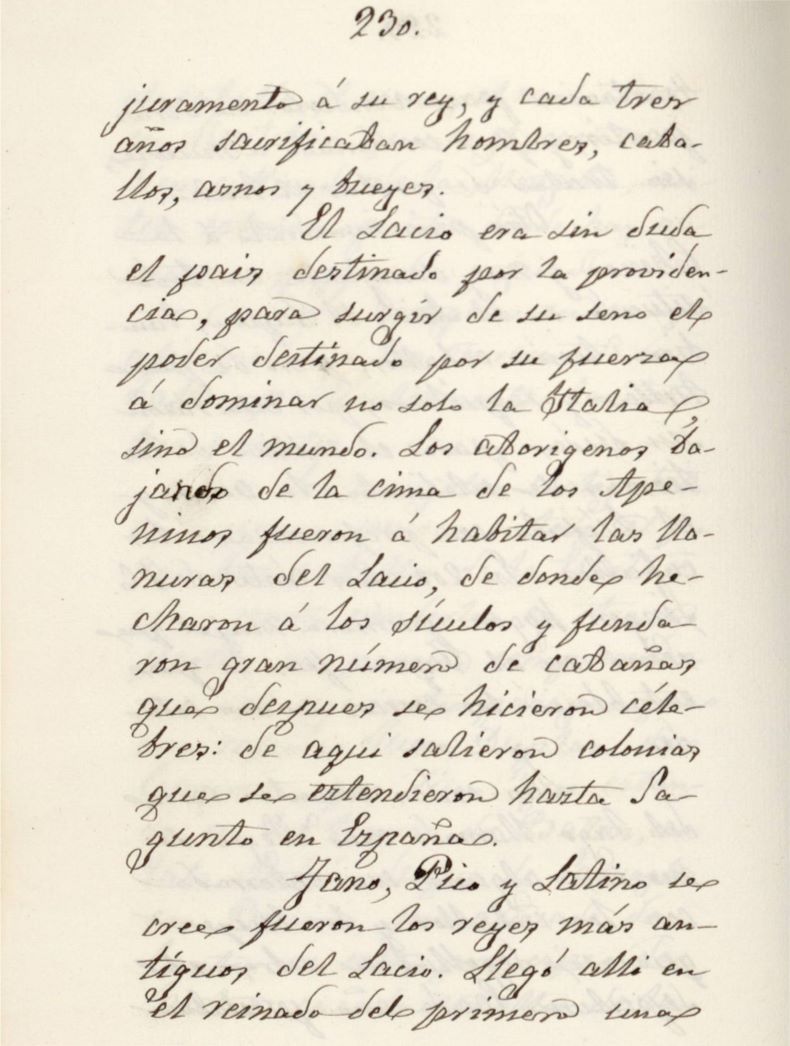 230.
juramento á su rey, y cada tres
años sacrificaban hombres, caba-
llos, asnos y bueyes.
El Lacio era sin duda
el pais destinado por la providen-
cia, para surgir de su seno el
poder destinado por su fuerza
á dominar no solo la Italia,
sino el mundo. Los aborigenos ba-
jando de la cima de los Ape-
ninos fueron á habitar las lla-
nuras del Lacio, de donde he-
charon á los sículos y funda-
ron gran número de cabañas
que despues se hicieron céle-
bres: de aqui salieron colonias
que se estendieron hasta Sa-
gunto en España.
Jano, Pico y Latino se
cree fueron los reyes más an-
tíguos del Lacio. Llegó alli en
el reinado del primero una